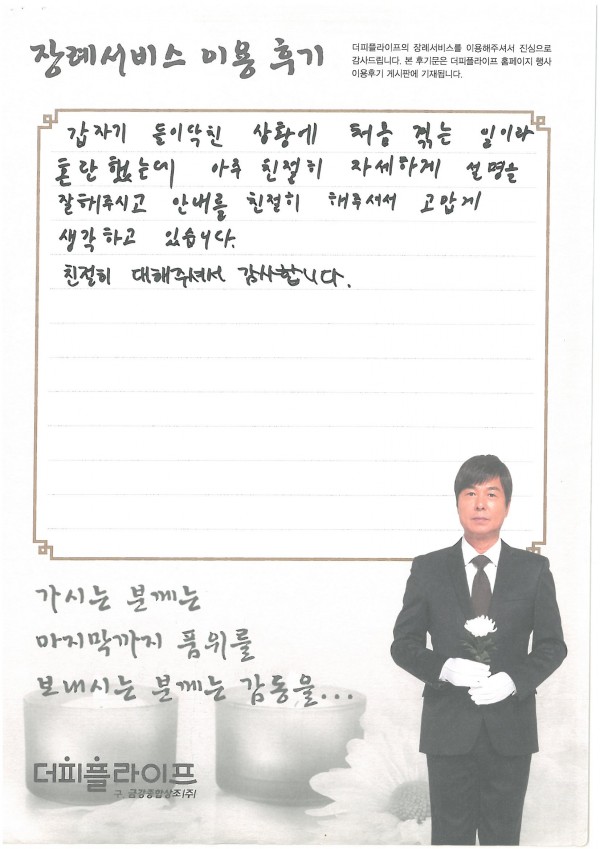 장례서비스 이용 후기
더피플라이프의 장례서비스를 이용해주셔서 진심으로
감사드립니다. 본 후기문은 더피플라이프 홈페이지 행사
이용후기 게시판에 기재됩니다.
갑자기 들이닥친 상황에 처음 겪는 일이라
혼란했는데 아주 친절히 자세하게 설명을
잘해주시고 안내를 친절히 해주셔서 고맙게
생각하고 있습니다.
친절히 대해주셔서 감사합니다.
가시는 분께는
마지막까지 품위를
보내시는 분께는 감동을...
더피플라이프
구. 금강종합상조(주)